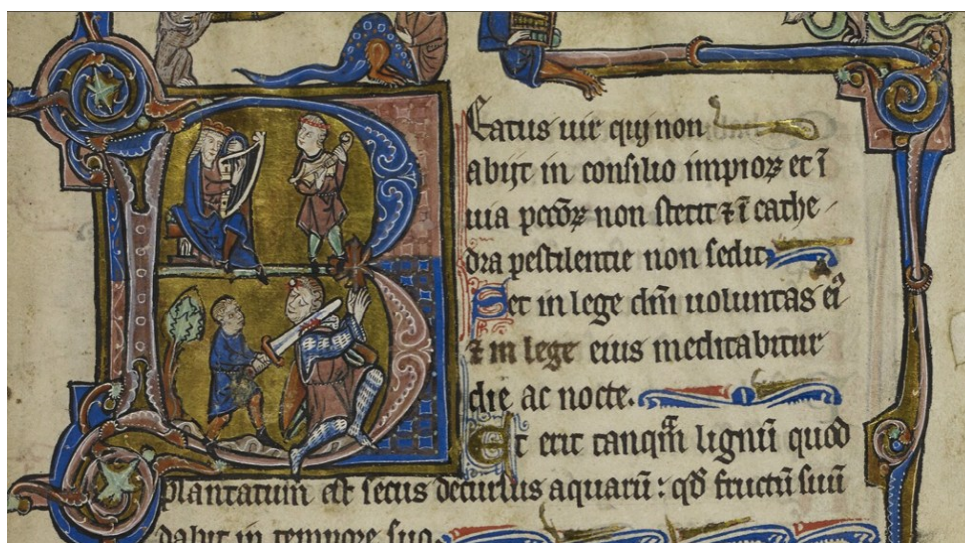 Beatus uir qui non
abijt in consilio impioꝝ et ī
uia pccōꝝ non stetit ⁊ ī cathe
dra pestilentie non sedit
Set in lege dn̄i uoluntas eiꝰ
⁊ in lege eius meditabitur
die ac nocte.
Et erit tanqm̄ lignū quod
plantatum est secus decursus aquarū : qd̄ fructū suū
dabit in tempore suo.